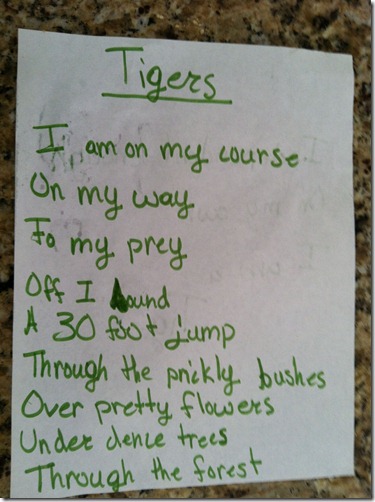 Tigers
I am on my course
On my way
To my prey
Off I bound
A 30 foot jump
Through the prickly bushes
Over pretty flowers
Under dence trees
Through the forest